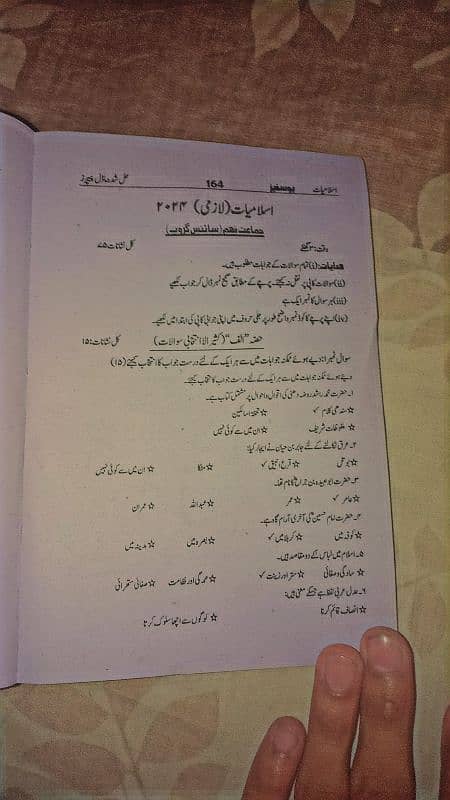 اسلامیات یوسفیز 164 حل شدہ ماڈل پیپرز
اسلامیات (لازمی) ۲۰۲۴
جماعت نہم (سائنس گروپ)
وقت: ۳ گھنٹے کل نشانات ۷۵
ہدایات: (i) تمام سوالات کے جوابات مطلوب ہیں۔
(ii) سوالات کاپی پر نقل نہ کیجئے۔ پرچے کے مطابق صحیح نمبر ڈال کر جواب لکھیے
(iii) ہر سوال کا نمبر ایک ہے
(iv) اپنے پرچے کا کوڈ نمبر واضح طور پر جلی حروف میں اپنی جوابی کاپی کی ابتدا میں لکھیے۔
حصہ "الف" (کثیر الانتخابی سوالات) کل نشانات: ۱۵
سوال نمبر ۱: دیے ہوئے ممکنہ جوابات میں سے ہر ایک کے لئے درست جواب کا انتخاب کیجئے (۱۵)
دیے ہوئے ممکنہ جوابات میں سے ہر ایک کے لئے درست جواب کا انتخاب کیجئے۔
۱۔ حضرت محمد راشد روضہ دھنی کی اقوال و احوال پر مشتمل کتاب ہے۔
☆ سندھی کلام ✓ ☆ تحفۃ السالکین
☆ ملفوظات شریف ☆ ان میں سے کوئی نہیں
۲۔ عرق نکالنے کے لئے جابر بن حیان نے ایجاد کیا:
☆ بوتلی ☆ قرع انبیق ✓ ☆ مٹکا ☆ ان میں سے کوئی نہیں
۳۔ حضرت ابو عبیدہ بن جراح کا نام تھا۔
☆ عامر ✓ ☆ عمر ☆ عبداللہ ☆ عمران
۴۔ حضرت امام حسین کی آخری آرام گاہ ہے۔
☆ کوفہ میں ☆ کربلا میں ✓ ☆ بصرہ میں ☆ مدینہ میں
۵۔ اسلام میں لباس کے دو مقاصد ہیں۔
☆ سادگی و صفائی ☆ ستر اور زینت ✓ ☆ عمدگی اور نظامت ☆ صفائی ستھرائی
۶۔ عدل عربی لفظ ہے جسکے معنی ہیں:
☆ انصاف قائم کرنا ☆ لوگوں سے اچھا سلوک کرنا